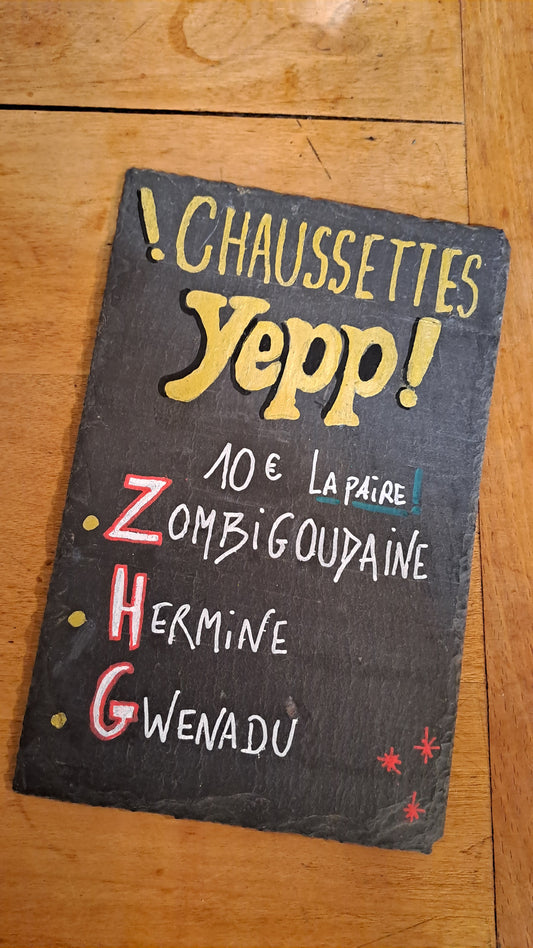 ! CHAUSSETTES
Yepp!
10 € LA PAIRE !
ZOMBiGOUDAiNE
HERMiNE
GWENADU